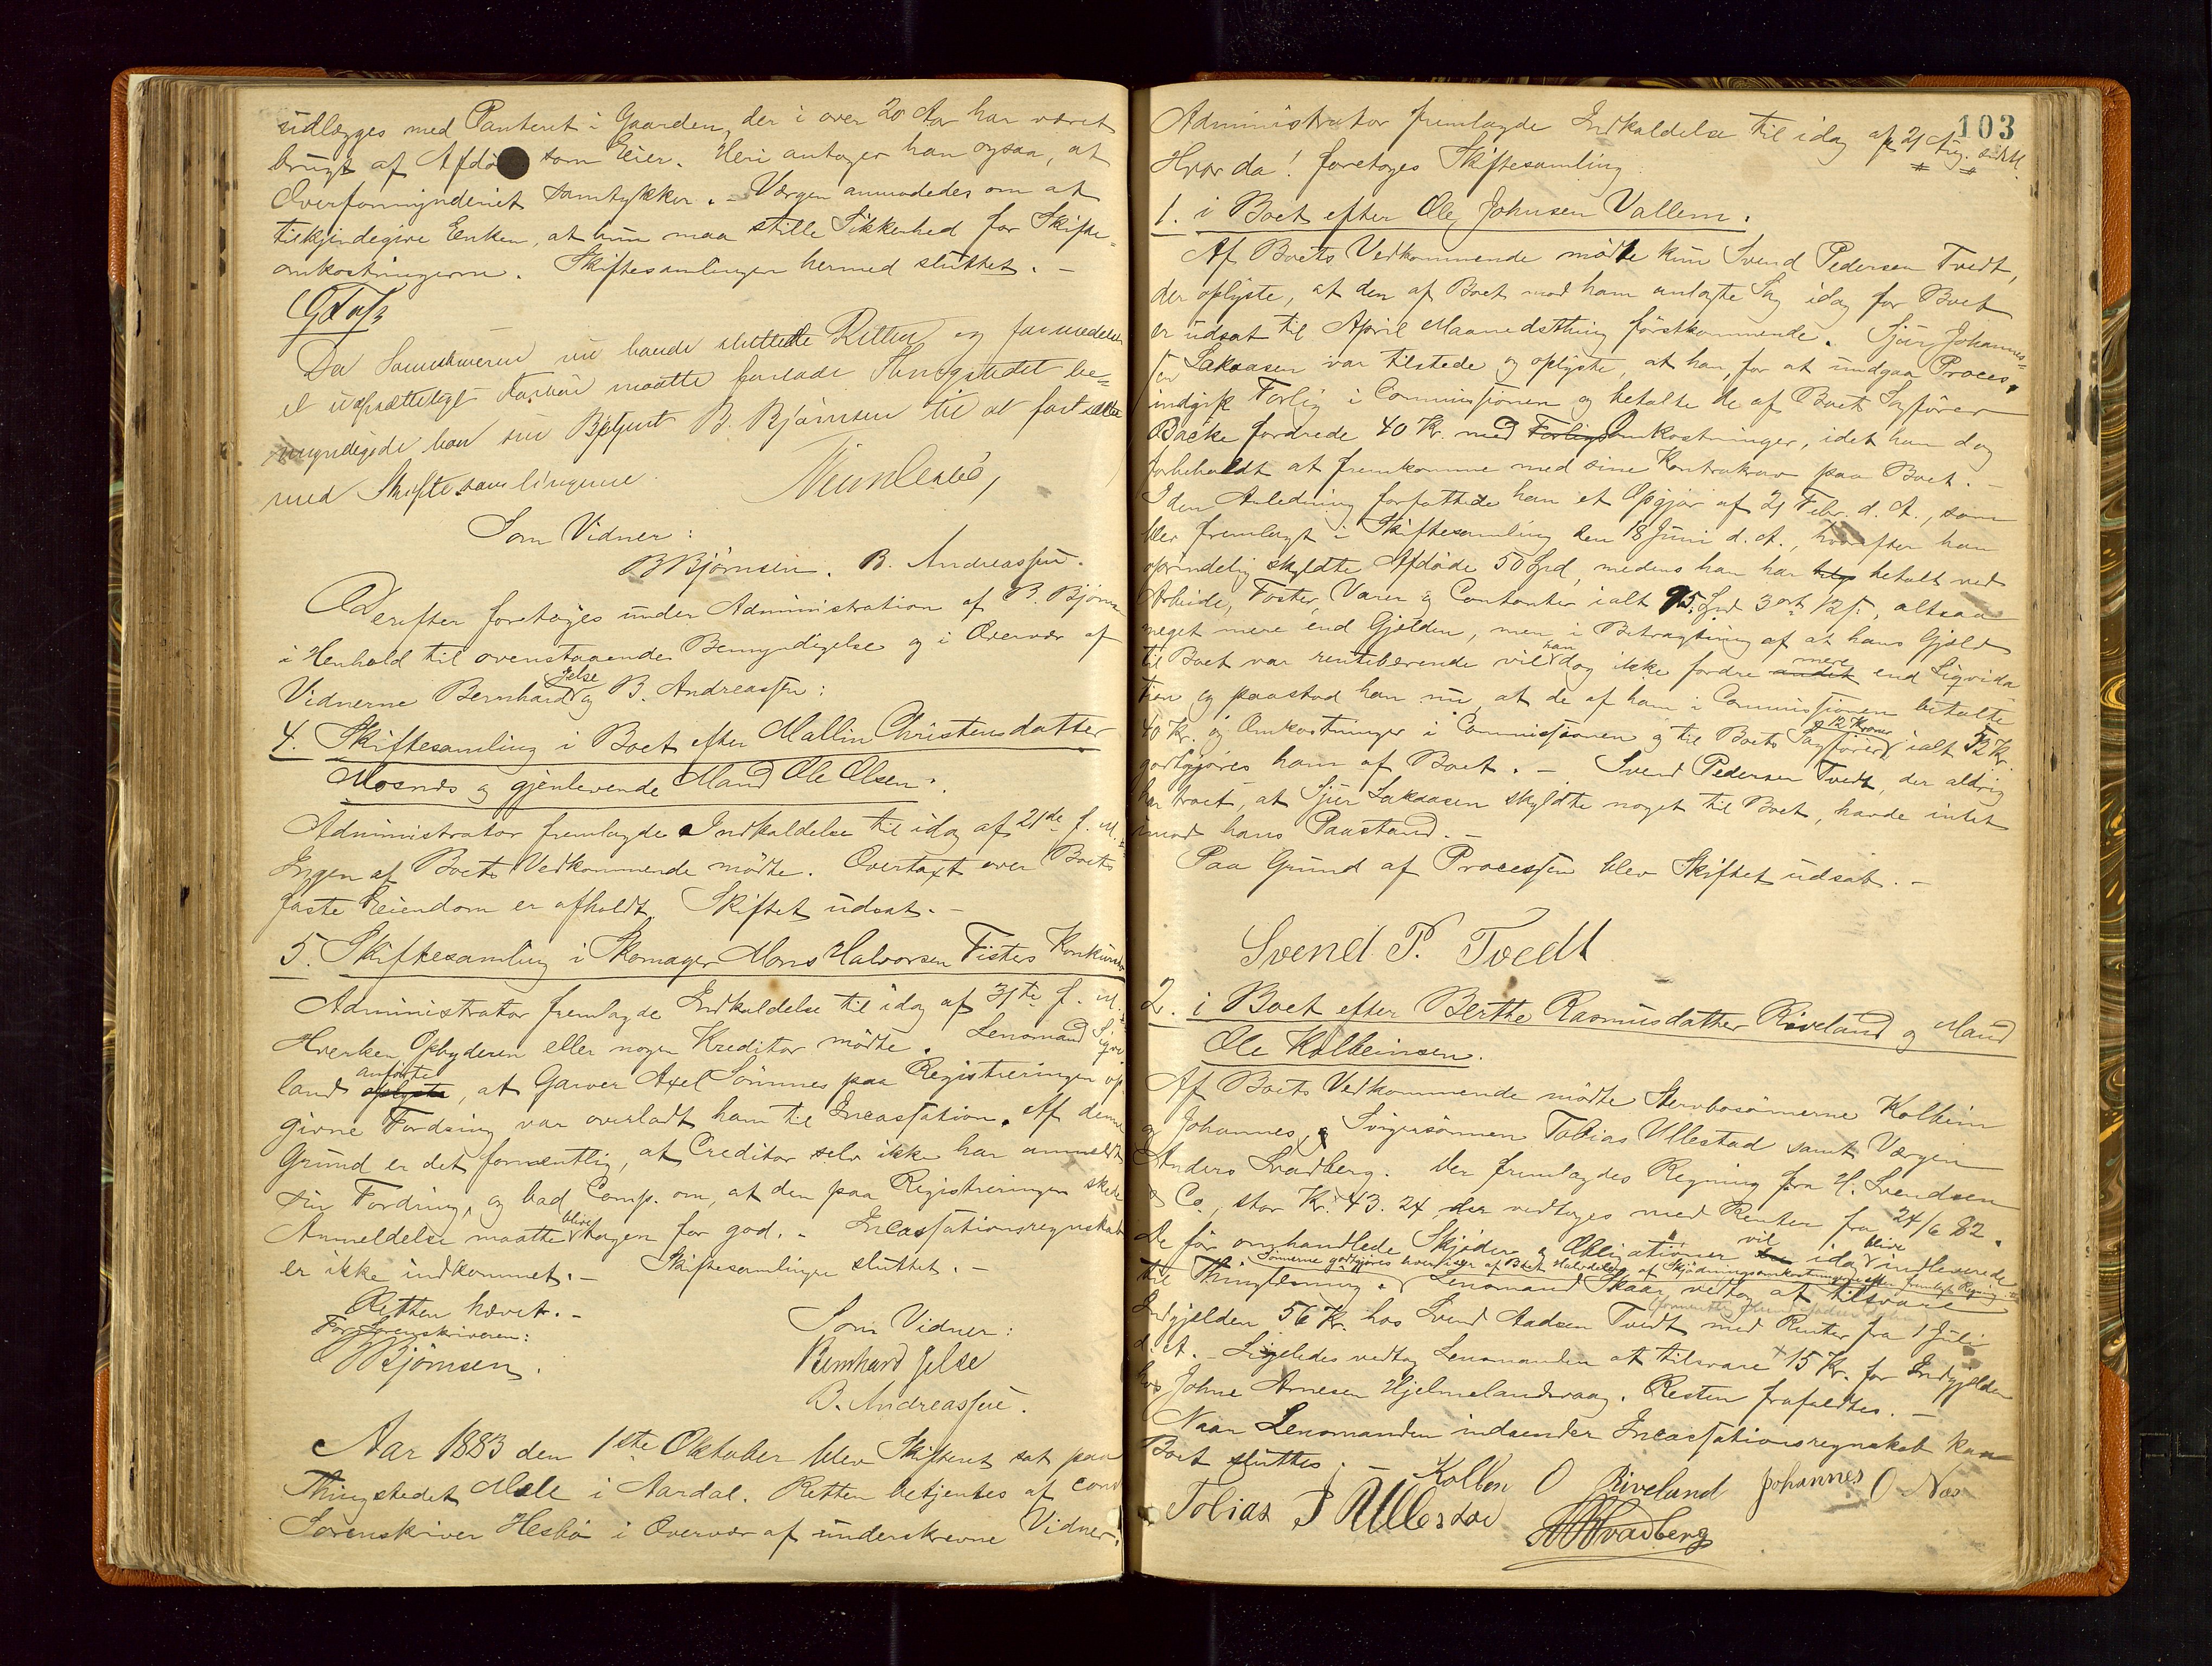 udlægges med Panteret i Gaarden, der i over 20 Aar har været
brugt af Afdø som Eier. Heri antager han ogsaa, at
Overformynderiet samtykker. - Værgen anmodedes om at
tilkjendegive Enken, at hun maa stille Sikkerhed for Skifte-
omkostningerne. Skiftesamlingen hermed sluttet. -
Da Sorenskriveren nu havde sluttede Retten og formedelst
et uopsætteligt maatte forlade Thingstedet be-
myndigede han sin Betjent B. Bjørnsen til at fortsætte
med Skiftesamlingerne
Som Vidner:
B Bjørnsen. B. Andreassen.
Derefter foretoges under Administration af B. Bjørnsen
i Henhold til ovenstaaende Bemyndigelse og i Overvær af
Vidnerne Bernhard Jelse og B. Andreassen:
4. Skiftesamling i Boet efter Mallin Christensdatter
Mosnæs og gjenlevende Mand Ole Olsen.
Administrator fremlagde Indkaldelse til idag af 21de f. M.
Ingen af Boets Vedkommende mødte. Overtaxt over Boets
faste Eiendom er afholdt. Skiftet udsat. -
5. Skiftesamling i Skomager Mons Halvorsen Fisters Konkursbo
Administrator fremlagde Indkaldelse til idag af 31te f. M.
Hverken Opbyderen eller nogen Kreditor mødte. Lensmand Sigve
land oplyste anførte, at Garver Axel Sømmes paa Registreringen op-
givne Fordring var overladt ham til Incassation. Af denne
Grund er det formentlig, at Creditor selv ikke har anmeldt
sin Fordring, og bad Comp. om, at den paa Registreringen skede
Anmeldelse maatte blive tagen for god. - Incassationsregnskab
er ikke indkommet. - Skiftesamlingen sluttet. -
Retten hævet. -
For Sorenskriveren:
BBjørnsen.
Som Vidner:
Bernhard Jelse
B. Andreassen.
Aar 1883 den 1ste Oktober blev Skifteret sat paa
Thingstedet Mæle i Aardal. Retten betjentes af const
Sorenskriver Hesbø i Overvær af underskrevne Vidner.
103
Administrator fremlagde Indkaldelse til idag af 21 Aug. sidstl.
Hvor da! foretoges Skiftesamling
1. i Boet efter Ole Johnsen Vallem.
Af Boets Vedkommende mødte kun Svend Pedersen Tvedt,
der oplyste, at den af Boet mod ham anlagte Sag idag for Boet
er udsat til April Maanedsthing førstkommende. Sjur Johannes-
sen Laksaasen var tilstede og oplyste, at han, for at undgaa Proces,
indgik Forlig i Commissionen og betalte de af Boets Sagfører
Backe fordrede 40 Kr. med Forligs Omkostninger, idet han dog
forbeholdt at fremkomme med sine Kontrakrav paa Boet. -
I den Anledning forfattede han et Opgjør af 21 Febr. d. A., som
blev fremlagt i Skiftesamling den 18 Juni d. A., hvorefter han
oprindelig skyldte Afdøde 50 Spd, medens han har betalt ved
Arbeide, Foster, Varer og Contanter ialt 95 Spd 3 ort 12 s., altsaa
meget mere end Gjælden, men i Betragtning af at hans Gjæld
til Boet var rentebærende vil han dog ikke fordre andet mere end Liqvida
tion og paastod han nu, at de af ham i Commissionen betalte
40 Kr. og Omkostninger i Commissionen og til Boets Sagfører 12 Kroner ialt 52 Kr.
godtgjøres ham af Boet. - Svend Pedersen Tvedt, der aldrig
har troet, at Sjur Laksaasen skyldte noget til Boet, havde intet
imod hans Paastand. -
Paa Grund af Processen blev Skiftet udsat. -
Svend P. Tvedt
2. i Boet efter Berthe Rasmusdatter Riveland og Mand
Ole Kolbeinsen.
Af Boets Vedkommende mødte Stervbosønnerne Kolbein
og Johannes, Svigersønnen Tobias Ullestad samt Værgen
Anders Svadberg. Der fremlagdes Regning fra H. Svendsen
& Co, stor Kr. 43.24, der vedtoges med Renter fra 24/6 82.
De før omhandlede Skjøder og Obligationer vil idag blive indleverede
til Thinglæsning. Sønnerne godtgjøres hver især af Boet Halvdelen af Skjødningsomkostningerne efter fremlagt Regning
Lensmand Skaar vedtog at tilsvare
Indgjælden 56 Kr. hos Svend Aadsen Tvedt med Renter fra 1 Juli
d. A. - Ligeledes vedtog Lensmanden at tilsvare 15 Kr. for Indgjælden
hos Johne Arnesen Hjelmelandsvaag. Resten frafaldtes. -
Naar Lensmanden indsender Incassationsregnskab kan
Boet sluttes. -
Kolben O Riveland Johannes O Næs
Tobias T Ullestad
A Svadberg